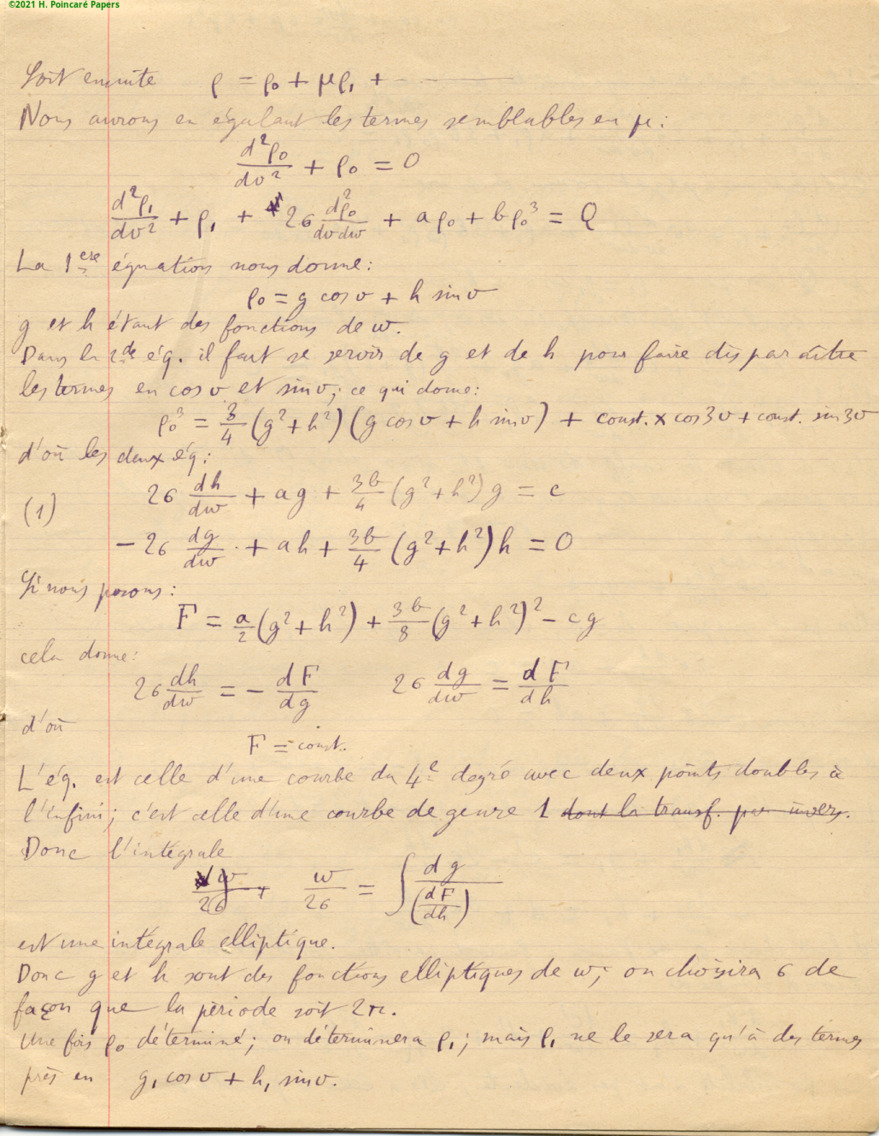 ©2021 H. Poincaré Papers
Soit ensuite ρ = ρ₀ + μρ₁ + - - ———
Nous aurons en égalant les termes semblables en μ:
d²ρ₀/dv² + ρ₀ = 0
d²ρ₁/dv² + ρ₁ + 2σ d²ρ₀/dvdw + aρ₀ + bρ₀³ = Q
La 1ère équation nous donne:
ρ₀ = g cos v + h sin v
g et h étant des fonctions de w.
Dans la 2de éq. il faut se servir de g et de h pour faire disparaître
les termes en cos v et sin v; ce qui donne:
ρ₀³ = 3/4 (g² + h²)(g cos v + h sin v) + const. × cos 3v + const. sin 3v
d'où les deux éq:
(1) 2σ dh/dw + ag + 3b/4 (g² + h²)g = c
- 2σ dg/dw . + ah + 3b/4 (g² + h²)h = 0
Si nous posons:
F = a/2 (g² + h²) + 3b/8 (g² + h²)² - cg
cela donne:
2σ dh/dw = - dF/dg 2σ dg/dw = dF/dh
d'où
F = const.
L'éq. est celle d'une courbe du 4e degré avec deux points doubles à
l'infini; c'est celle d'une courbe de genre 1 dont la transf. par invers.
Donc l'intégrale
dw/2σ + w/2σ = ∫ dg/(dF/dh)
est une intégrale elliptique.
Donc g et h sont des fonctions elliptiques de w; on choisira σ de
façon que la période soit 2π.
Une fois ρ₀ déterminé; on déterminera ρ₁; mais ρ₁ ne le sera qu'à des termes
près en g₁ cos v + h₁ sin v.